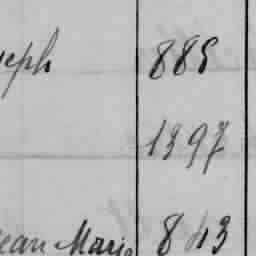 seph 885
1397
Jean Marie 843